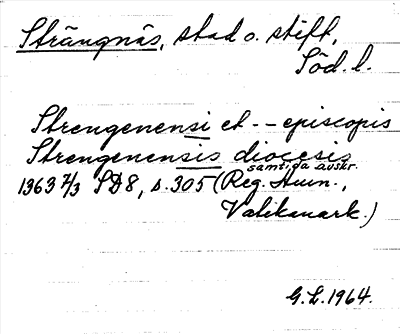 Strängnäs, stad o. stift,
Söd. l.
Strengenensi et -- episcopis
Strengenensis diocesis
samtida avskr.
1363 2/3 SD 8, s. 305 (Reg. Aven.,
Vatikanark.)
G.L. 1964.